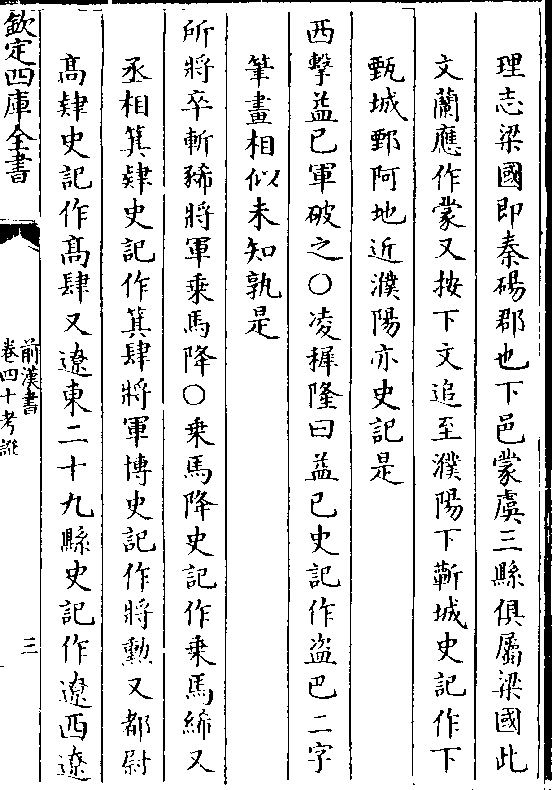 理志梁國即秦碭郡也下邑蒙虞三縣俱屬梁國此
文蘭應作蒙又按下文追至濮陽下蘄城史記作下
甄城鄄阿地近濮陽亦史記是
西擊益已軍破之○凌稺隆曰益已史記作盗巴二字
筆畫相似未知孰是
所將卒斬豨將軍乗馬降○乗馬降史記作乗馬絺又
丞相箕肄史記作箕肆將軍博史記作將勲又都尉
髙肄史記作髙肆又遼東二十九縣史記作遼西遼
欽定四庫全書
前漢書
卷四十考證
三